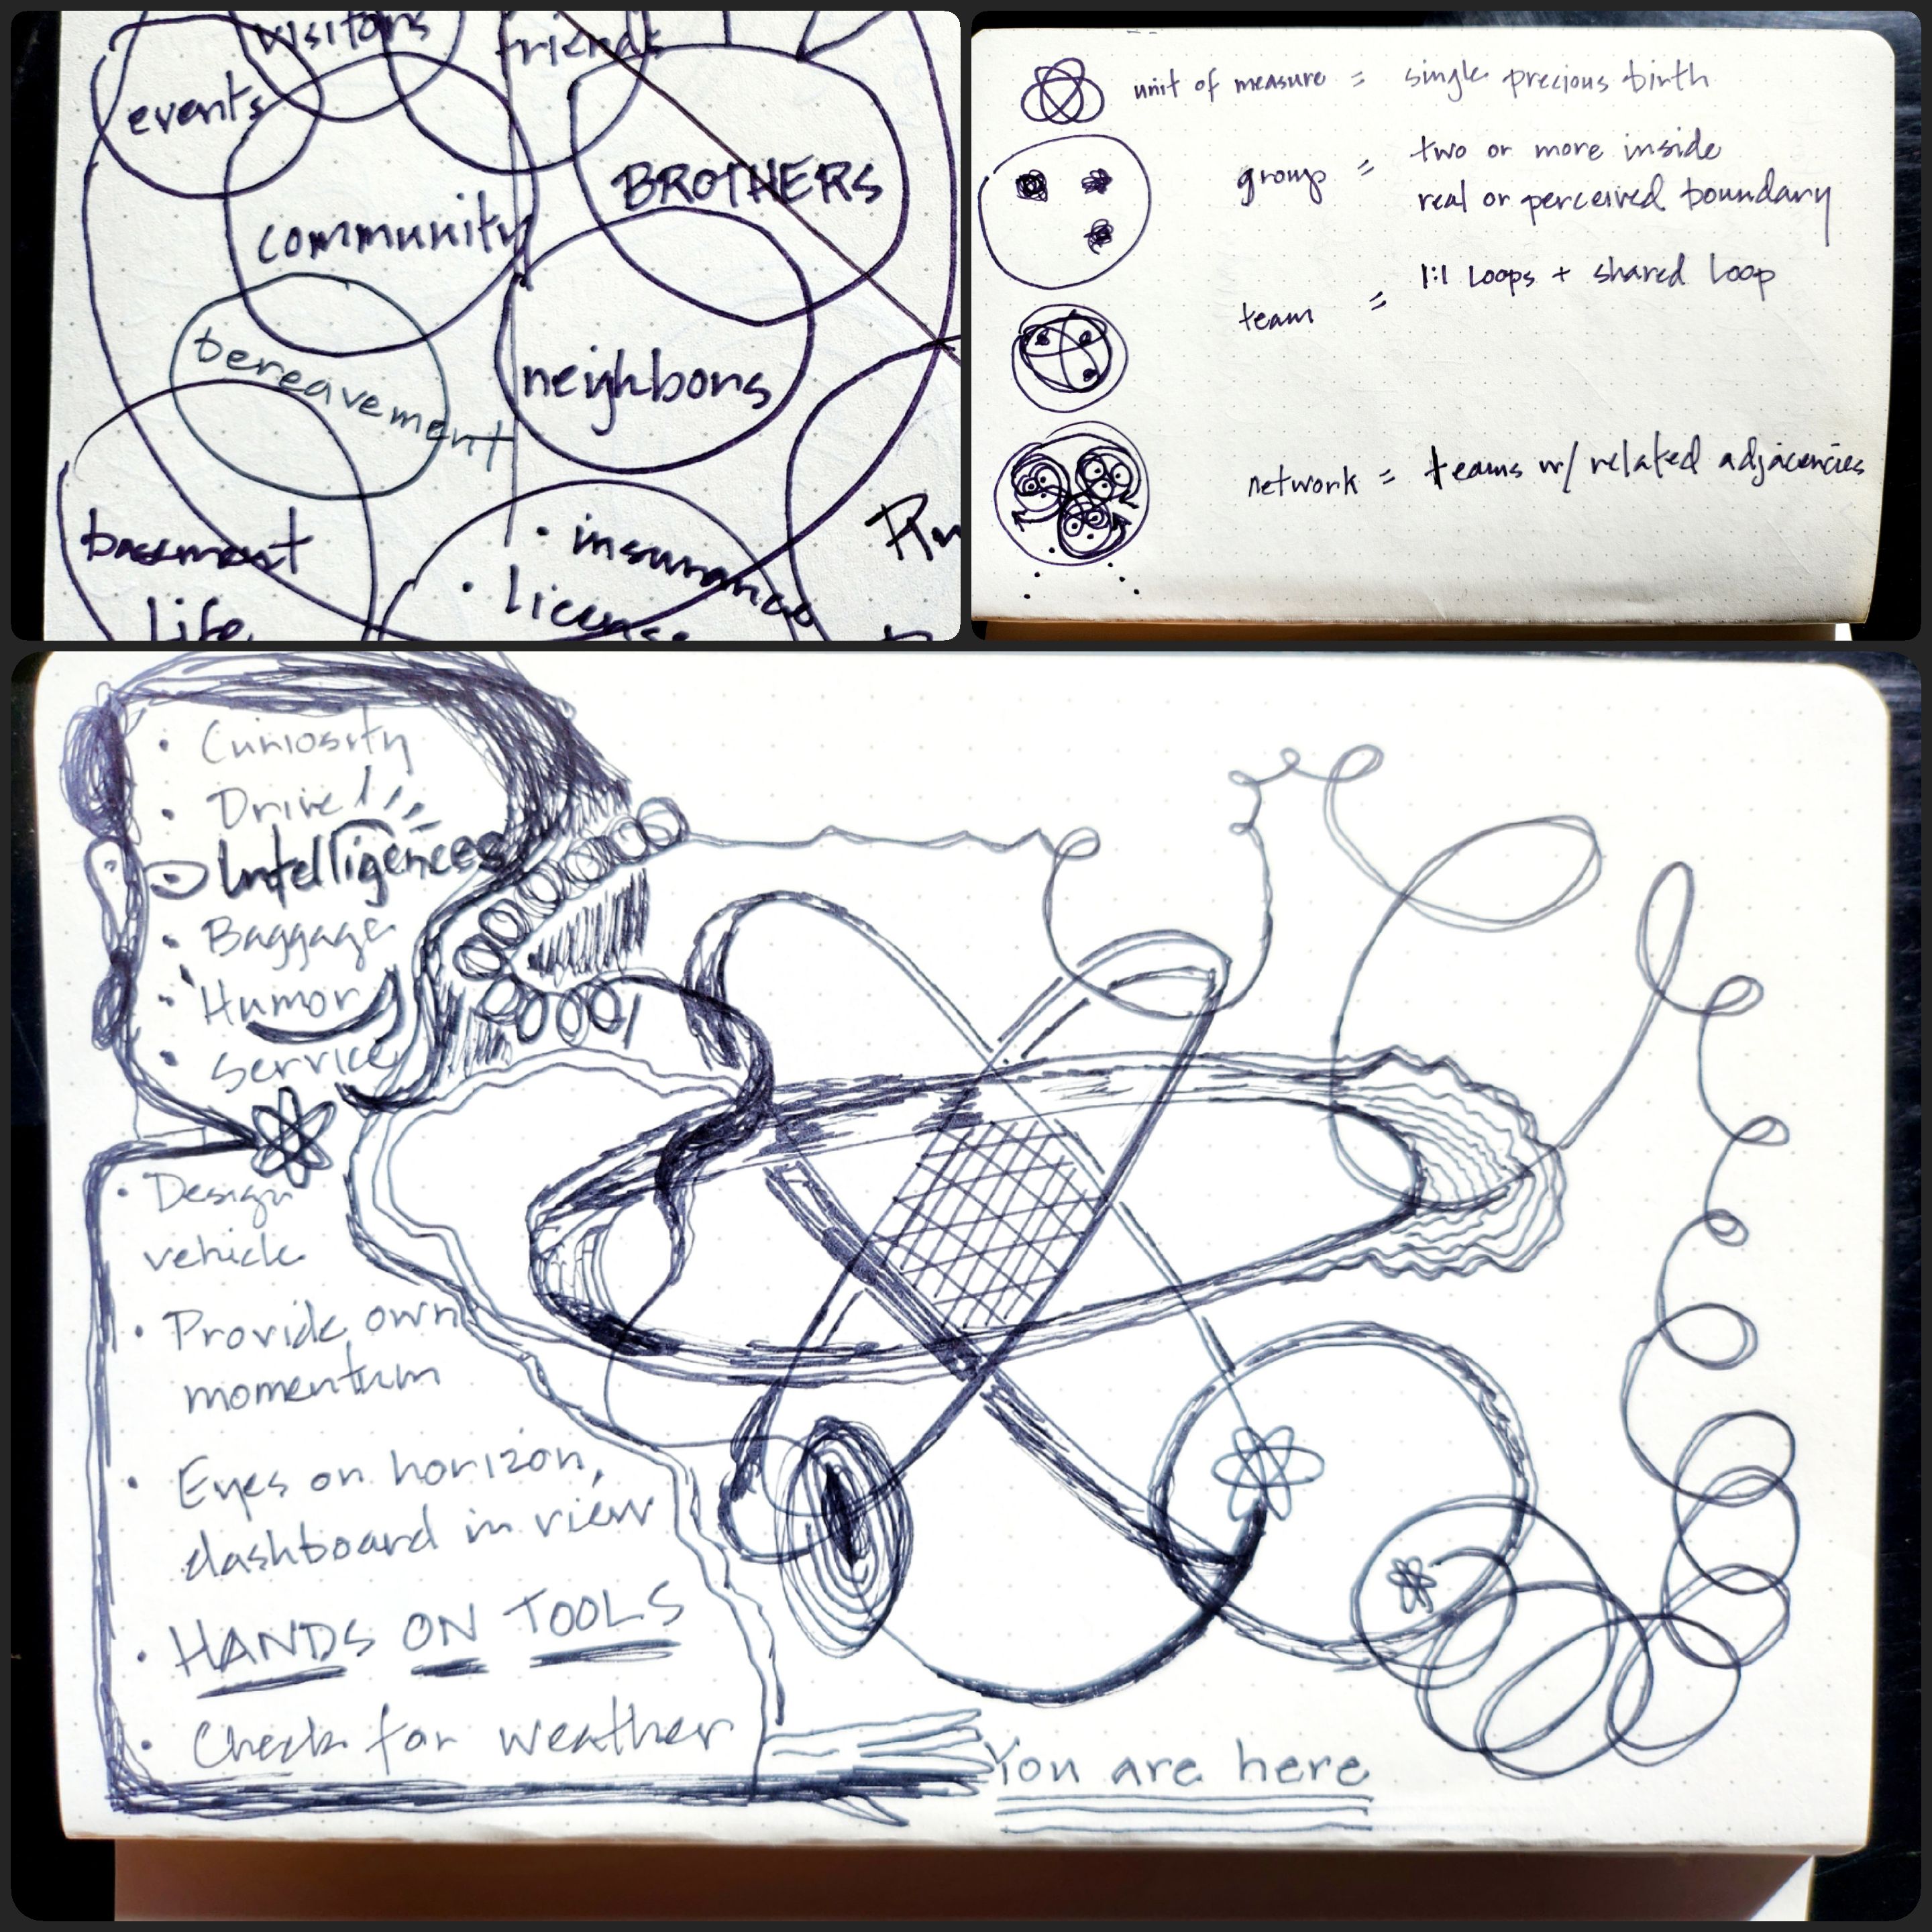 visitors
friends
events
BROTHERS
community
bereavement
neighbors
basement
life
• insurance
• license
unit of measure = single precious birth
group = two or more inside
real or perceived boundary
team = 1:1 Loops + shared loop
network = teams w/ related adjacencies
• Curiosity
• Drive!
Intelligences
• Baggage
• Humor
• Service
• Design
vehicle
• Provide own
momentum
• Eyes on horizon,
dashboard in view
• HANDS ON TOOLS
• Check for weather
You are here